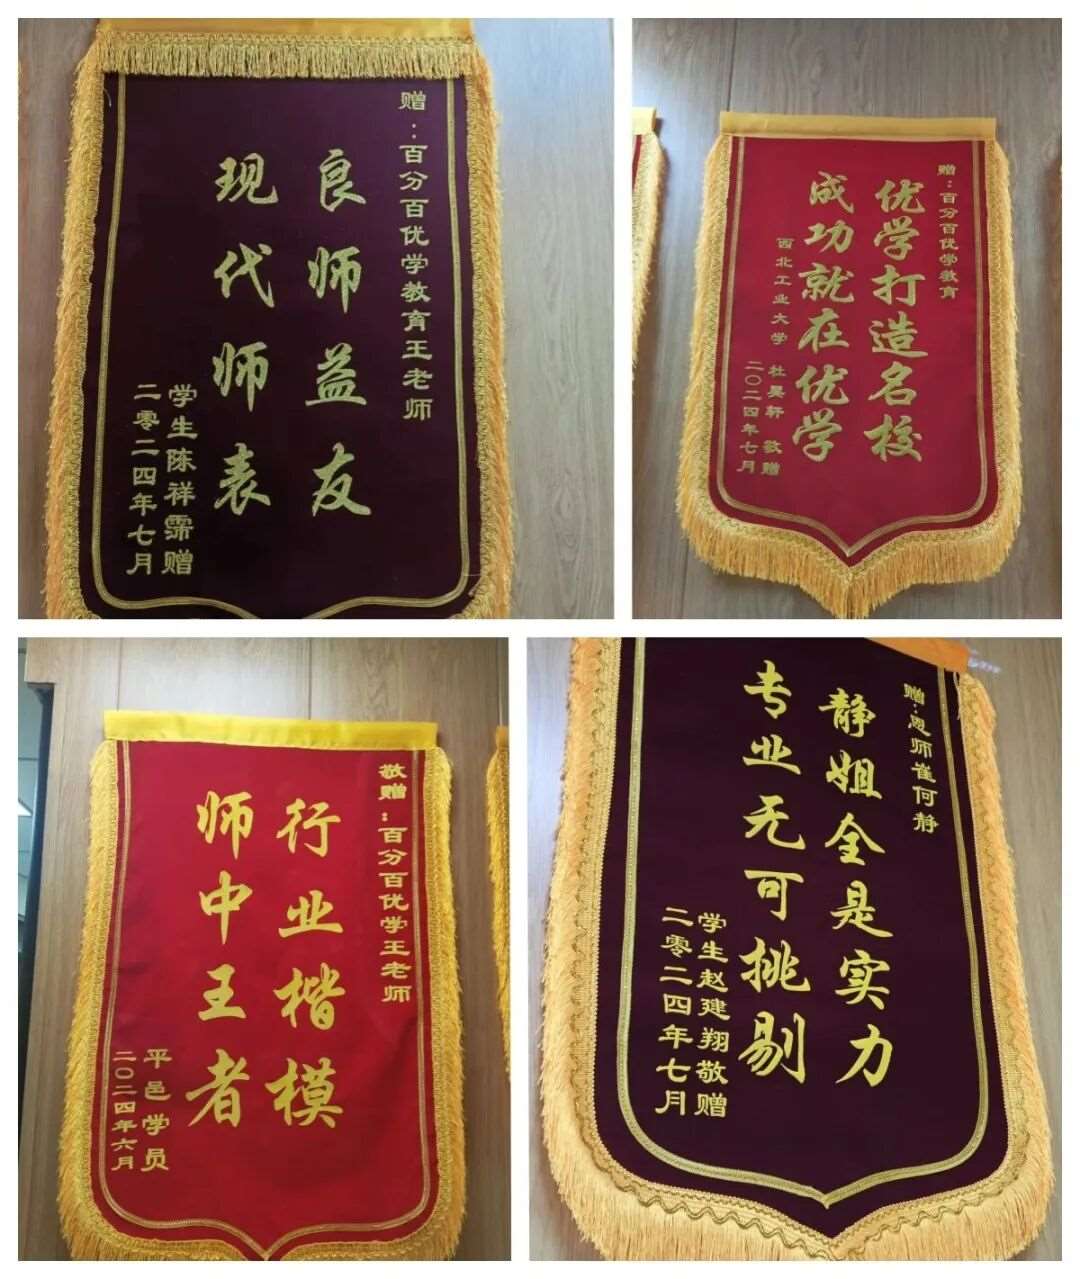 赠：百分百优学教育王老师
良师益友
现代师表
学生陈祥霈赠
二零二四年七月
赠：百分百优学教育
优学打造名校
成功就在优学
西北工业大学 杜昊轩 敬赠
二〇二四年七月
敬赠：百分百优学王老师
行业楷模
师中王者
平邑学员
二〇二四年六月
赠：恩师崔何静
静姐全是实力
专业无可挑剔
学生赵建翔敬赠
二零二四年七月